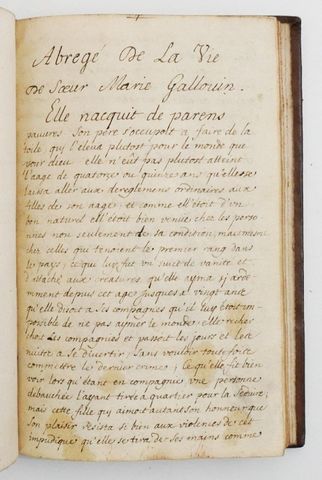 Abregé De La Vie
De Sœur Marie Gallouin.
Elle nacquit de parens
pauvres son pere s'occupoit a faire de la
toile, qui l'eleva plutost pour le monde que
pour dieu elle n'eut pas plutost atteint
l'aage de quatorze ou quinze ans qu'elle se
laissa aller aux dereglemens ordinaires aux
filles de son aage; et comme elle etoit d'un
bon naturel ell'etoit bien venüe chez les perso
nnes non seulement de sa condition, mais mesme
chez celles qui tenoient le premier rang dans
le pays; ce qui luy fut un sujet de vanité et
d'attache aux creatures, qu'elle ayma si arde
mment depuis cet aage jusques a vingt ans
qu'elle disoit a ses compagnes qu'il luy etoit im-
possible de ne pas aymer le monde; elle recher
choit les compagnies et passoit les jours et les
nuits a se divertir, sans vouloir toutefois
commettre le dernier crime; ce qu'elle fit bien
voir lors qu'etant en compagnie une personne
debauchée l'ayant tirée a quartier pour la seduire;
mais cette fille qui aimoit autant son honneur que
son plaisir resista si bien aux violences de cet
impudique qu'elle se tira de ses mains comme